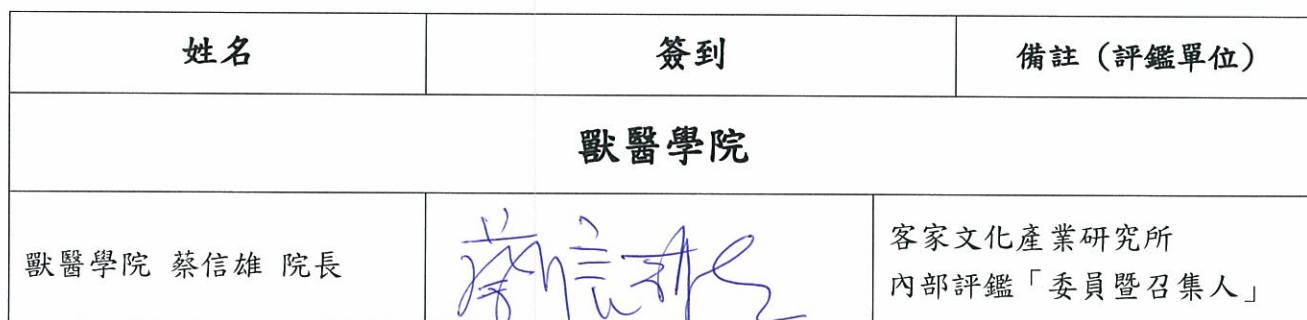 姓名 簽到 備註（評鑑單位）
獸醫學院
獸醫學院 蔡信雄 院長
蔡信雄
客家文化產業研究所
內部評鑑「委員暨召集人」